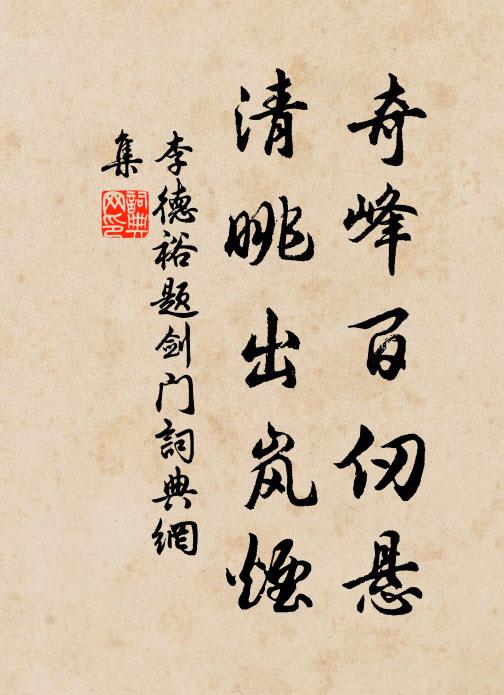 奇峰百仞悬
清眺出岚烟
李德裕题剑门词典网
集
词典网印